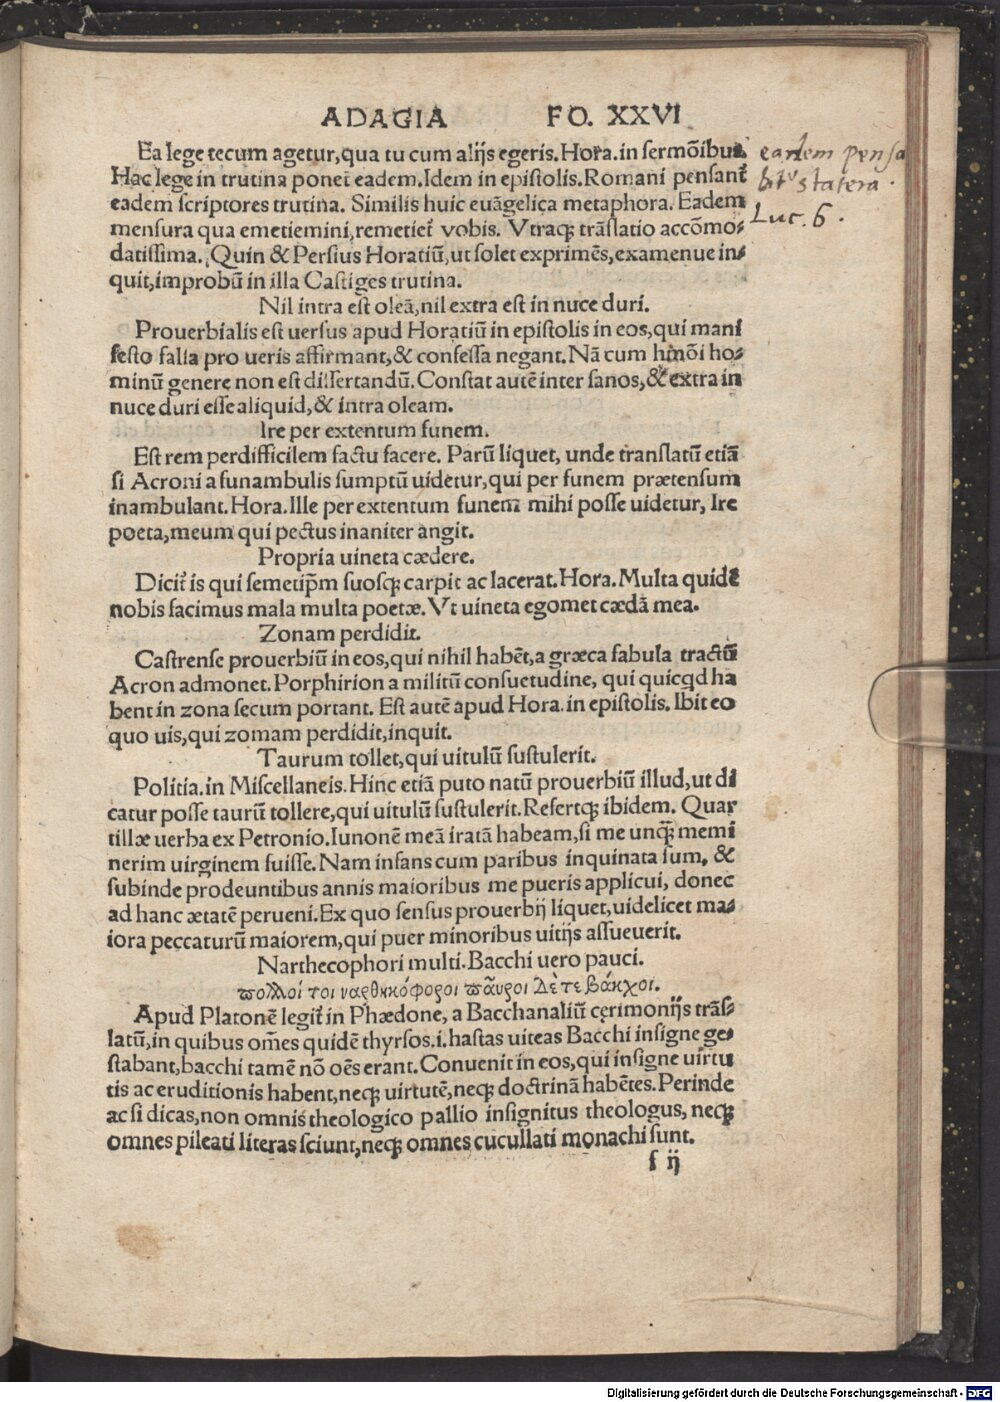 ADAGIA FO. XXVI
Ea lege tecum agetur,qua tu cum alijs egeris.Hora.in sermõibus.
Hac lege in trutina ponet̃ eadem.Idem in epistolis.Romani pensant̃
eadem scriptores trutina. Similis huic euãgelica metaphora. Eadem
mensura qua emetiemini,remetiet̃ vobis. Vtraqꝫ trãslatio accõmo⸗
datissima. Quin & Persius Horatiũ,ut solet exprimẽs,examenue in⸗
quit,improbũ in illa Castiges trutina.
eadem pensa
bit᷒ statera.
Luc. 6.
Nil intra est oleã,nil extra est in nuce duri.
Prouerbialis est uersus apud Horatiũ in epistolis in eos,qui mani
festo falsa pro ueris affirmant,& confessa negant.Nã cum hmõi ho⸗
minũ genere non est dissertandũ.Constat autẽ inter sanos,& extra in
nuce duri esse aliquid,& intra oleam.
Ire per extentum funem.
Est rem perdifficilem factu facere. Parũ liquet, unde translatũ etiã
si Acroni a funambulis sumptũ uidetur,qui per funem prætensum
inambulant.Hora.Ille per extentum funem mihi posse uidetur, Ire
poeta,meum qui pectus inaniter angit.
Propria uineta cædere.
Dicit̃ is qui semetip̃m suosqꝫ carpit ac lacerat.Hora.Multa quidẽ
nobis facimus mala multa poetæ.Vt uineta egomet cædã mea.
Zonam perdidit.
Castrense prouerbiũ in eos,qui nihil habẽt,a græca fabula tractũ
Acron admonet.Porphirion a militũ consuetudine, qui quicqd ha
bent in zona secum portant. Est autẽ apud Hora.in epistolis.Ibit eo
quo uis,qui zomam perdidit,inquit.
Taurum tollet,qui uitulũ sustulerit.
Politia.in Miscellaneis.Hinc etiã puto natũ prouerbiũ illud,ut di
catur posse taurũ tollere,qui uitulũ sustulerit.Refertqꝫ ibidem. Quar
tillæ uerba ex Petronio.Iunonẽ meã iratã habeam,si me unqꝫ̃ memi
nerim uirginem fuisse.Nam infans cum paribus inquinata sum, &
subinde prodeuntibus annis maioribus me pueris applicui, donec
ad hanc ætatẽ perueni.Ex quo sensus prouerbij liquet,uidelicet ma⸗
iora peccaturũ maiorem,qui puer minoribus uitijs assueuerit.
Narthecophori multi.Bacchi uero pauci.
πολλοί τοι ναρθηκόφοροι παῦροι Δὲ τε βάκχοι.
Apud Platonẽ legit̃ in Phædone, a Bacchanaliũ cerimonijs trãs⸗
latũ,in quibus om̃es quidẽ thyrsos.i.hastas uiteas Bacchi insigne ge⸗
stabant,bacchi tamẽ nõ oẽs erant.Conuenit in eos,qui insigne uirtu
tis ac eruditionis habent,neqꝫ uirtutẽ,neqꝫ doctrinã habẽtes.Perinde
ac si dicas,non omnis theologico pallio insignitus theologus, neqꝫ
omnes pileati literas sciunt,neqꝫ omnes cucullati monachi sunt.
f ij
Digitalisierung gefördert durch die Deutsche Forschungsgemeinschaft - DFG